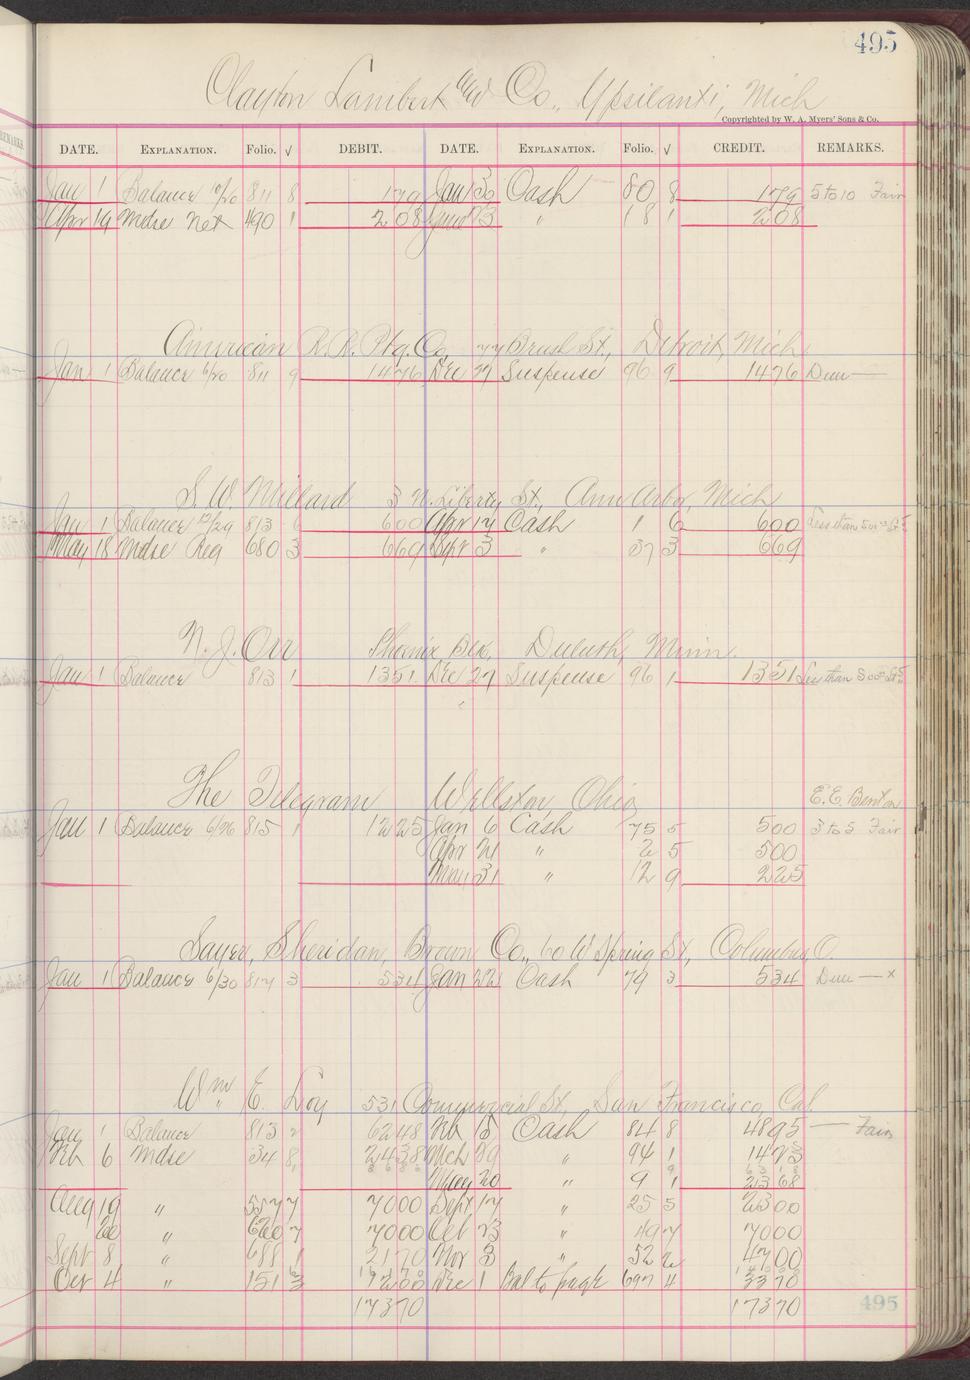 495
Clayton Lambert Mfg Co., Ypsilanti, Mich
Copyrighted by W. A. Myers' Sons & Co.
DATE. EXPLANATION. Folio. √ DEBIT. DATE. EXPLANATION. Folio. √ CREDIT. REMARKS.
Jan 1 Balance 811 8 179 Jan 30 Cash 80 8 179 5 to 10 Fair
Apr 19 Mdse Net 490 1 208 June 13 " 18 1 208
American R.R. Ptg. Co., 77 Brush St., Detroit, Mich
Jan 1 Balance 6/20 811 9 1476 Dec 27 Suspense 96 9 1476 Dun —
S. W. Millard 3 N. Liberty St., Ann Arbor, Mich
Jan 1 Balance 12/29 813 6 600 Apr 17 Cash 1 6 600 Less than
May 18 Mdse Reg 680 3 669 Sept 3 " 37 3 669
N. J. Orr Phoenix Blk, Duluth, Minn.
Jan 1 Balance 813 1 1351 Dec 27 Suspense 96 1 1351 Less than
The Telegram Wellston, Ohio
E. E. Benton
Jan 1 Balance 6/26 815 1 1225 Jan 6 Cash 75 5 500 3 to 5 Fair
Apr 21 " 2 5 500
May 31 " 12 9 225
Sayer, Sheridan, Brown Co., 60 W Spring St, Columbus, O.
Jan 1 Balance 6/30 817 3 534 Jan 22 Cash 79 3 534 Dun — x
Wm E. Loy 531 Commercial St., San Francisco, Cal.
Jan 1 Balance 813 2 6248 Feb 15 Cash 84 8 4895 — Fair
Feb 6 Mdse 34 8 2438 Mch 29 " 94 1 1423
8686 May 20 " 9 1 2368
Aug 19 " 557 7 7000 Sept 17 " 25 5 2300
20 " 620 7 7000 Oct 23 " 49 7 7000
Sept 8 " 688 1 2170 Nov 3 " 52 2 4700
Oct 4 " 151 1200 Dec 1 Bal to page 697 4 3370
17370 17370 495